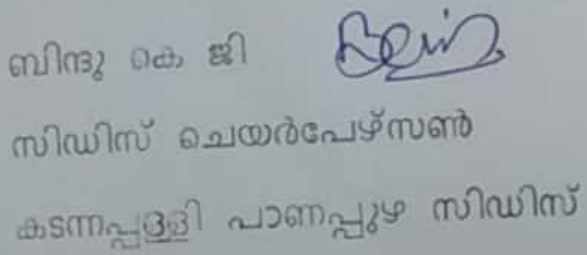 ബിന്ദു കെ ജി
സിഡിസ് ചെയർപേഴ്സൺ
കടന്നപ്പള്ളി പാണപ്പുഴ സിഡിസ്